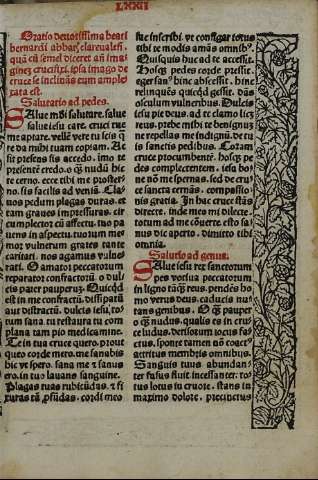 LXXII
Oratio deuotissima beati
bernardi abbatis clareualeſ.
quā cū ſemel diceret an imaginē
crucifixi. ipſa imago de
cruce ſe inclinās eum amplexata
eſt.
Salutatio ad pedes.
SAlue mūdi ſalutare, ſalue
ſalue ieſu care. cruci tue
me aptare. vellē vere tu ſcis q̄
re da mihi tuam copiam. Ac
ſi preſens ſis accedo. imo te
preſentē credo. o q̄ʒ nudū hic
te cerno. ecce tibi me proſterno.
ſis facilis ad veniā. Clauos
pedum plagas duras. et
tam graues impreſſuras. circumplector
cū affectu. tuo pauens
in aſpectu. tuorum memor
vulnerum grates tante
caritati. nos agamus vulnerati.
O amator peccatorum
reparator confractorū. o dulcis
pater pauperuʒ. Quicq̇d
eſt in me confractū. diſſipatū
aut diſtractū. dulcis ieſu, totum
ſana. tu reſtaura tu complana
tam pio medicamine.
Te in tua cruce quero. prout
queo corde mero. me ſanabis
hic vt ſpero. ſana me ⁊ ſanus
ero. in tuo lauans ſanguine.
Plagas tuas rubicūdas. ⁊ fixuras
tā ꝓfūdas. cordi meo
fac inſcribi. vt configar totus
tibi te modis amās omnibꝰ.
Quiſquis huc ad te acceſſit.
Hoſcʒ pedes corde preſſit.
eger ſanꝰ hinc abſceſſit. hinc
relinquēs quicq̇d geſſit. dās
oſculum vulneribus. Dulcis
ieſu pie deus. ad te clamo licʒ
reus. prebe mihi te benignuʒ
ne repellas me indignū. de tuis
ſanctis pedibus. Coram
cruce procumbentē. hoſcʒ pedes
complectentem. ieſu bone
nō me ſpernas. ſed de cruce
ſancta cernās. compaſſionis
gratia. In hac cruce ſtās
directe. inde meo mi dilecte. totum
ad me corde. eſto ſanus
dic aperto. dimitto tibi
omnia.
Salutatio ad genua.
SAlue ieſu rex ſanctorum
ſpes votiua peccatorum
in ligno tācʒ reus. pendēs homo
verus deus. caducis nutans
genibus. O q̄ʒ pauper
o q̄ʒ nudus. qualis es in cruce
ludus. deriſorum iocus factus.
ſponte tamen nō coactꝰ
attritus membris omnibus.
Sanguis tuus abundanter
fuſus fluit inceſſanter. totus
lotus in cruore. ſtans in
maximo dolore. precinctus